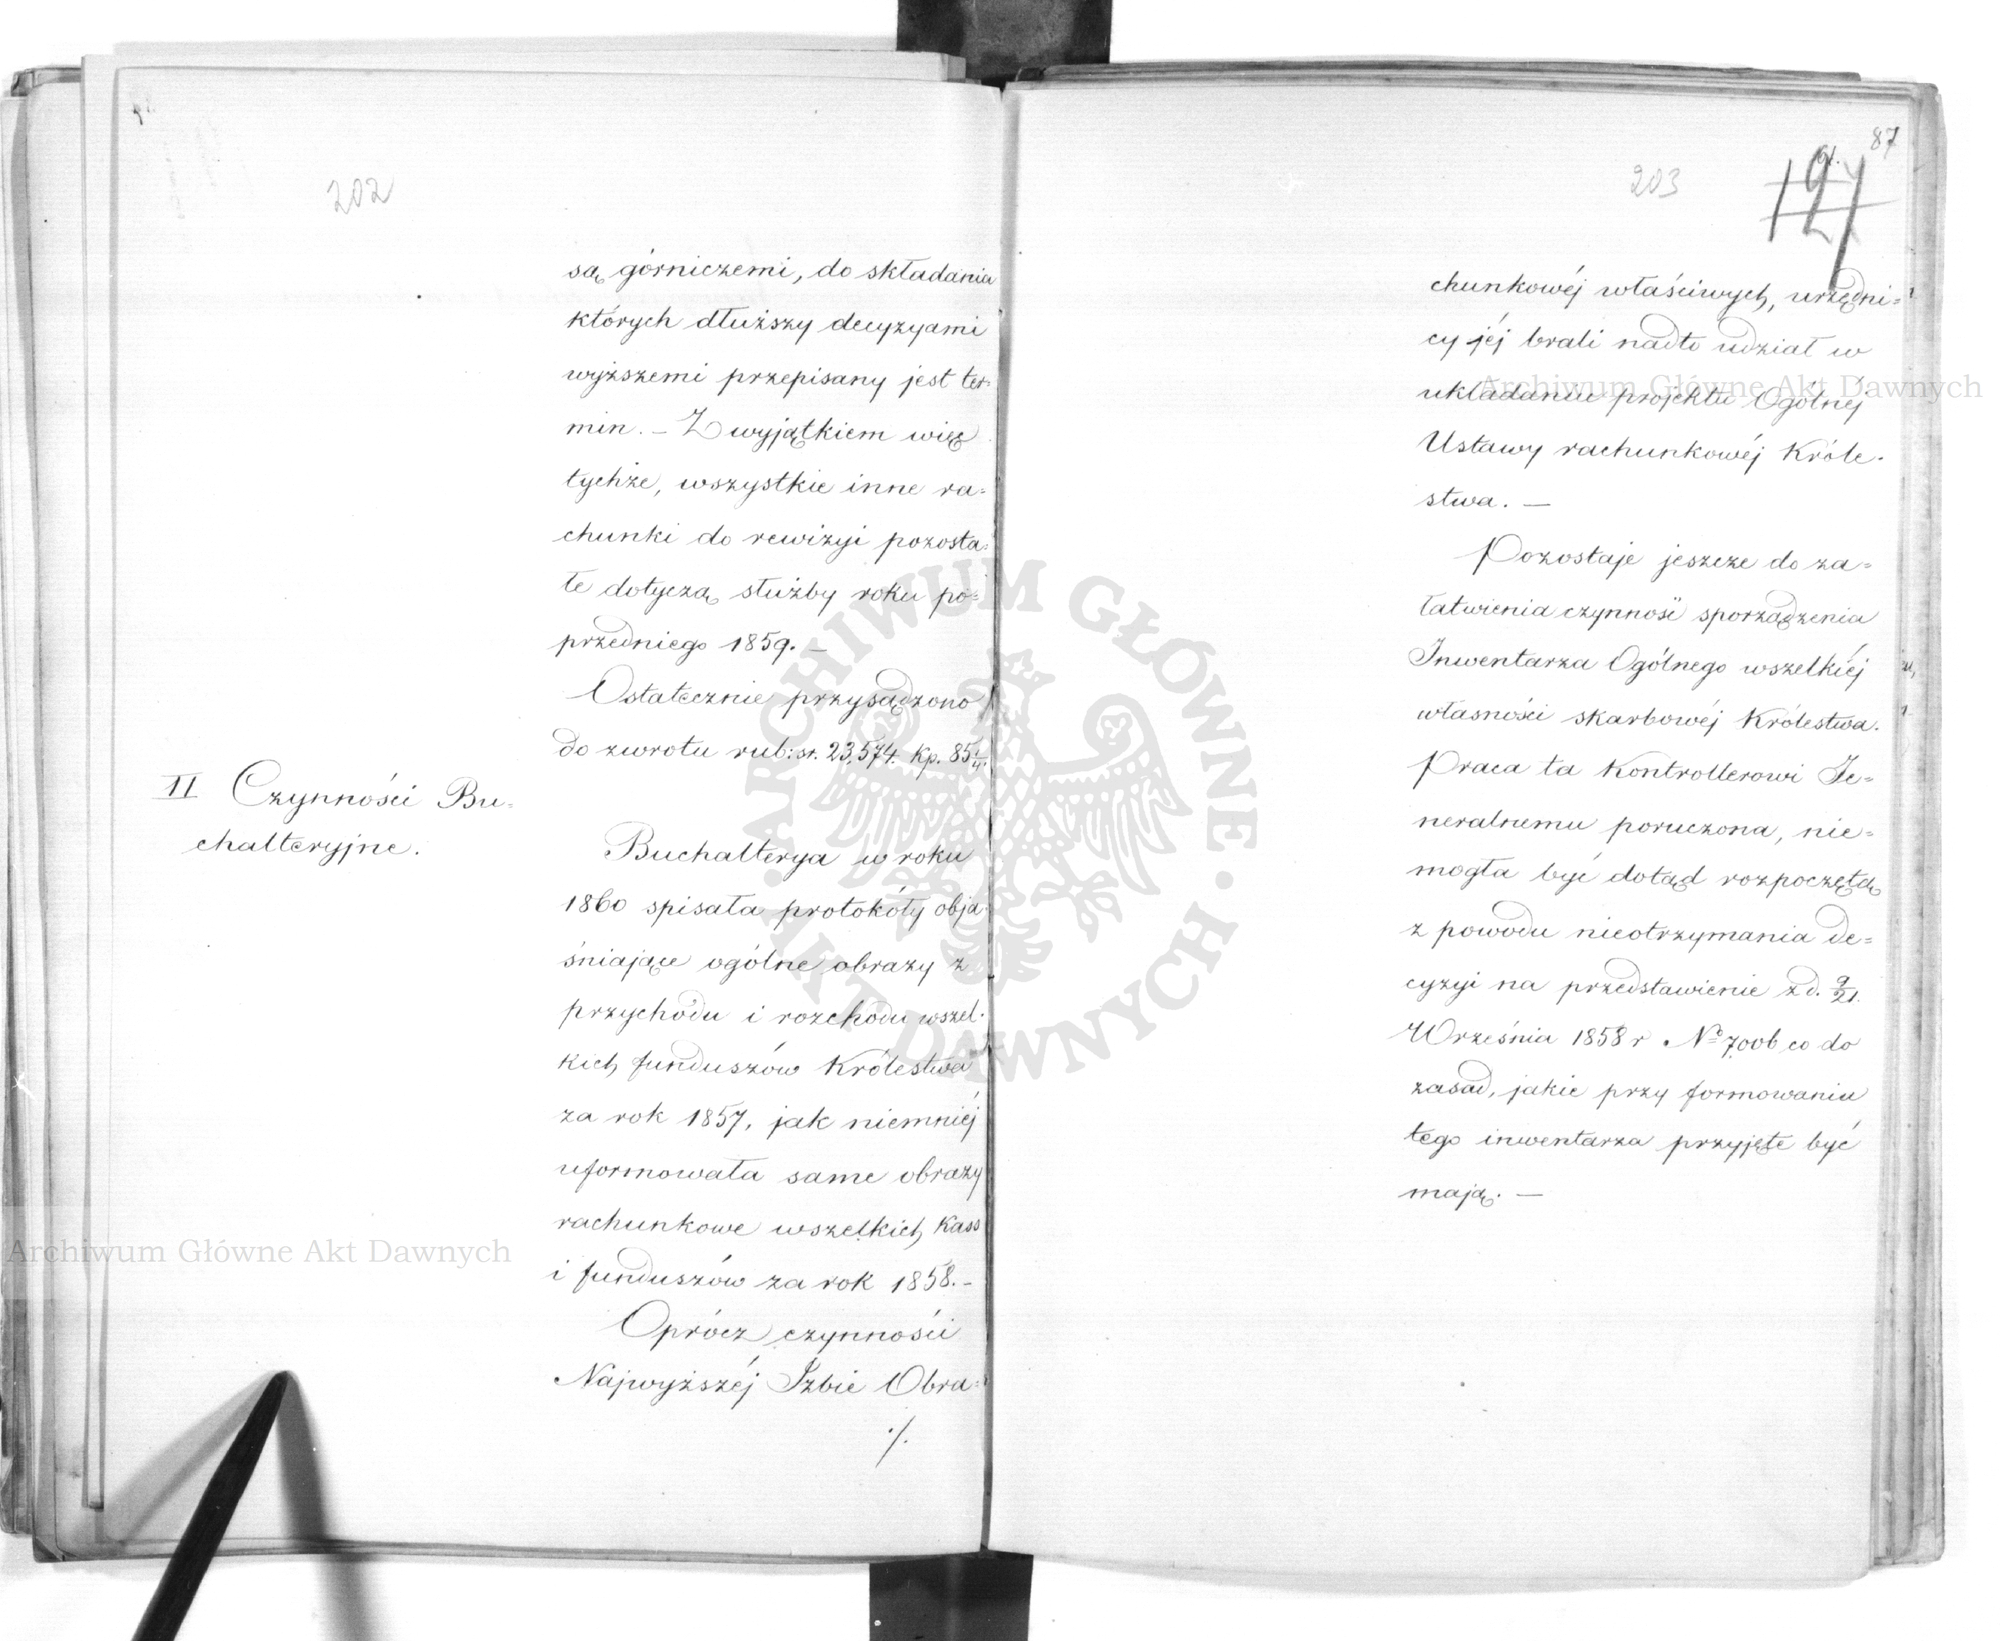 202
są górniczemi, do składania
których dłuższy decyzyami
wyższemi przepisany jest ter=
min. – Z wyjątkiem więc
tychże, wszystkie inne ra=
chunki do rewizyi pozosta=
łe dotyczą służby roku po=
przedniego 1859. –
Ostatecznie przysądzono
do zwrotu rub: sr. 23,574. kp. 85 1/4.
II Czynności Bu-
chalteryjne.
Buchalterya w roku
1860 spisała protokóły obja-
śniające ogólne obrazy z
przychodu i rozchodu wszel-
kich funduszów Królestwa
za rok 1857, jak niemniéj
uformowała same obrazy
rachunkowe wszelkich Kass
i funduszów za rok 1858. –
Oprócz czynności
Najwyższéj Izbie Obra=
./.
87
203
chunkowéj właściwych, urzędni=
cy jéj brali nadto udział w
układaniu projektu Ogólnéj
Ustawy rachunkowéj Króle-
stwa. —
Pozostaje jeszcze do za=
łatwienia czynność sporządzenia
Inwentarza Ogólnego wszelkiéj
własności skarbowéj Królestwa.
Praca ta Kontrollerowi Je=
neralnemu poruczona, nie=
mogła być dotąd rozpoczętą
z powodu nieotrzymania de=
cyzyi na przedstawienie z d. 9/21.
Września 1858 r. No 7006 co do
zasad, jakie przy formowaniu
tego inwentarza przyjęte być
mają. —
Archiwum Główne Akt Dawnych
Archiwum Główne Akt Dawnych
ARCHIWUM GŁÓWNE
AKT DAWNYCH